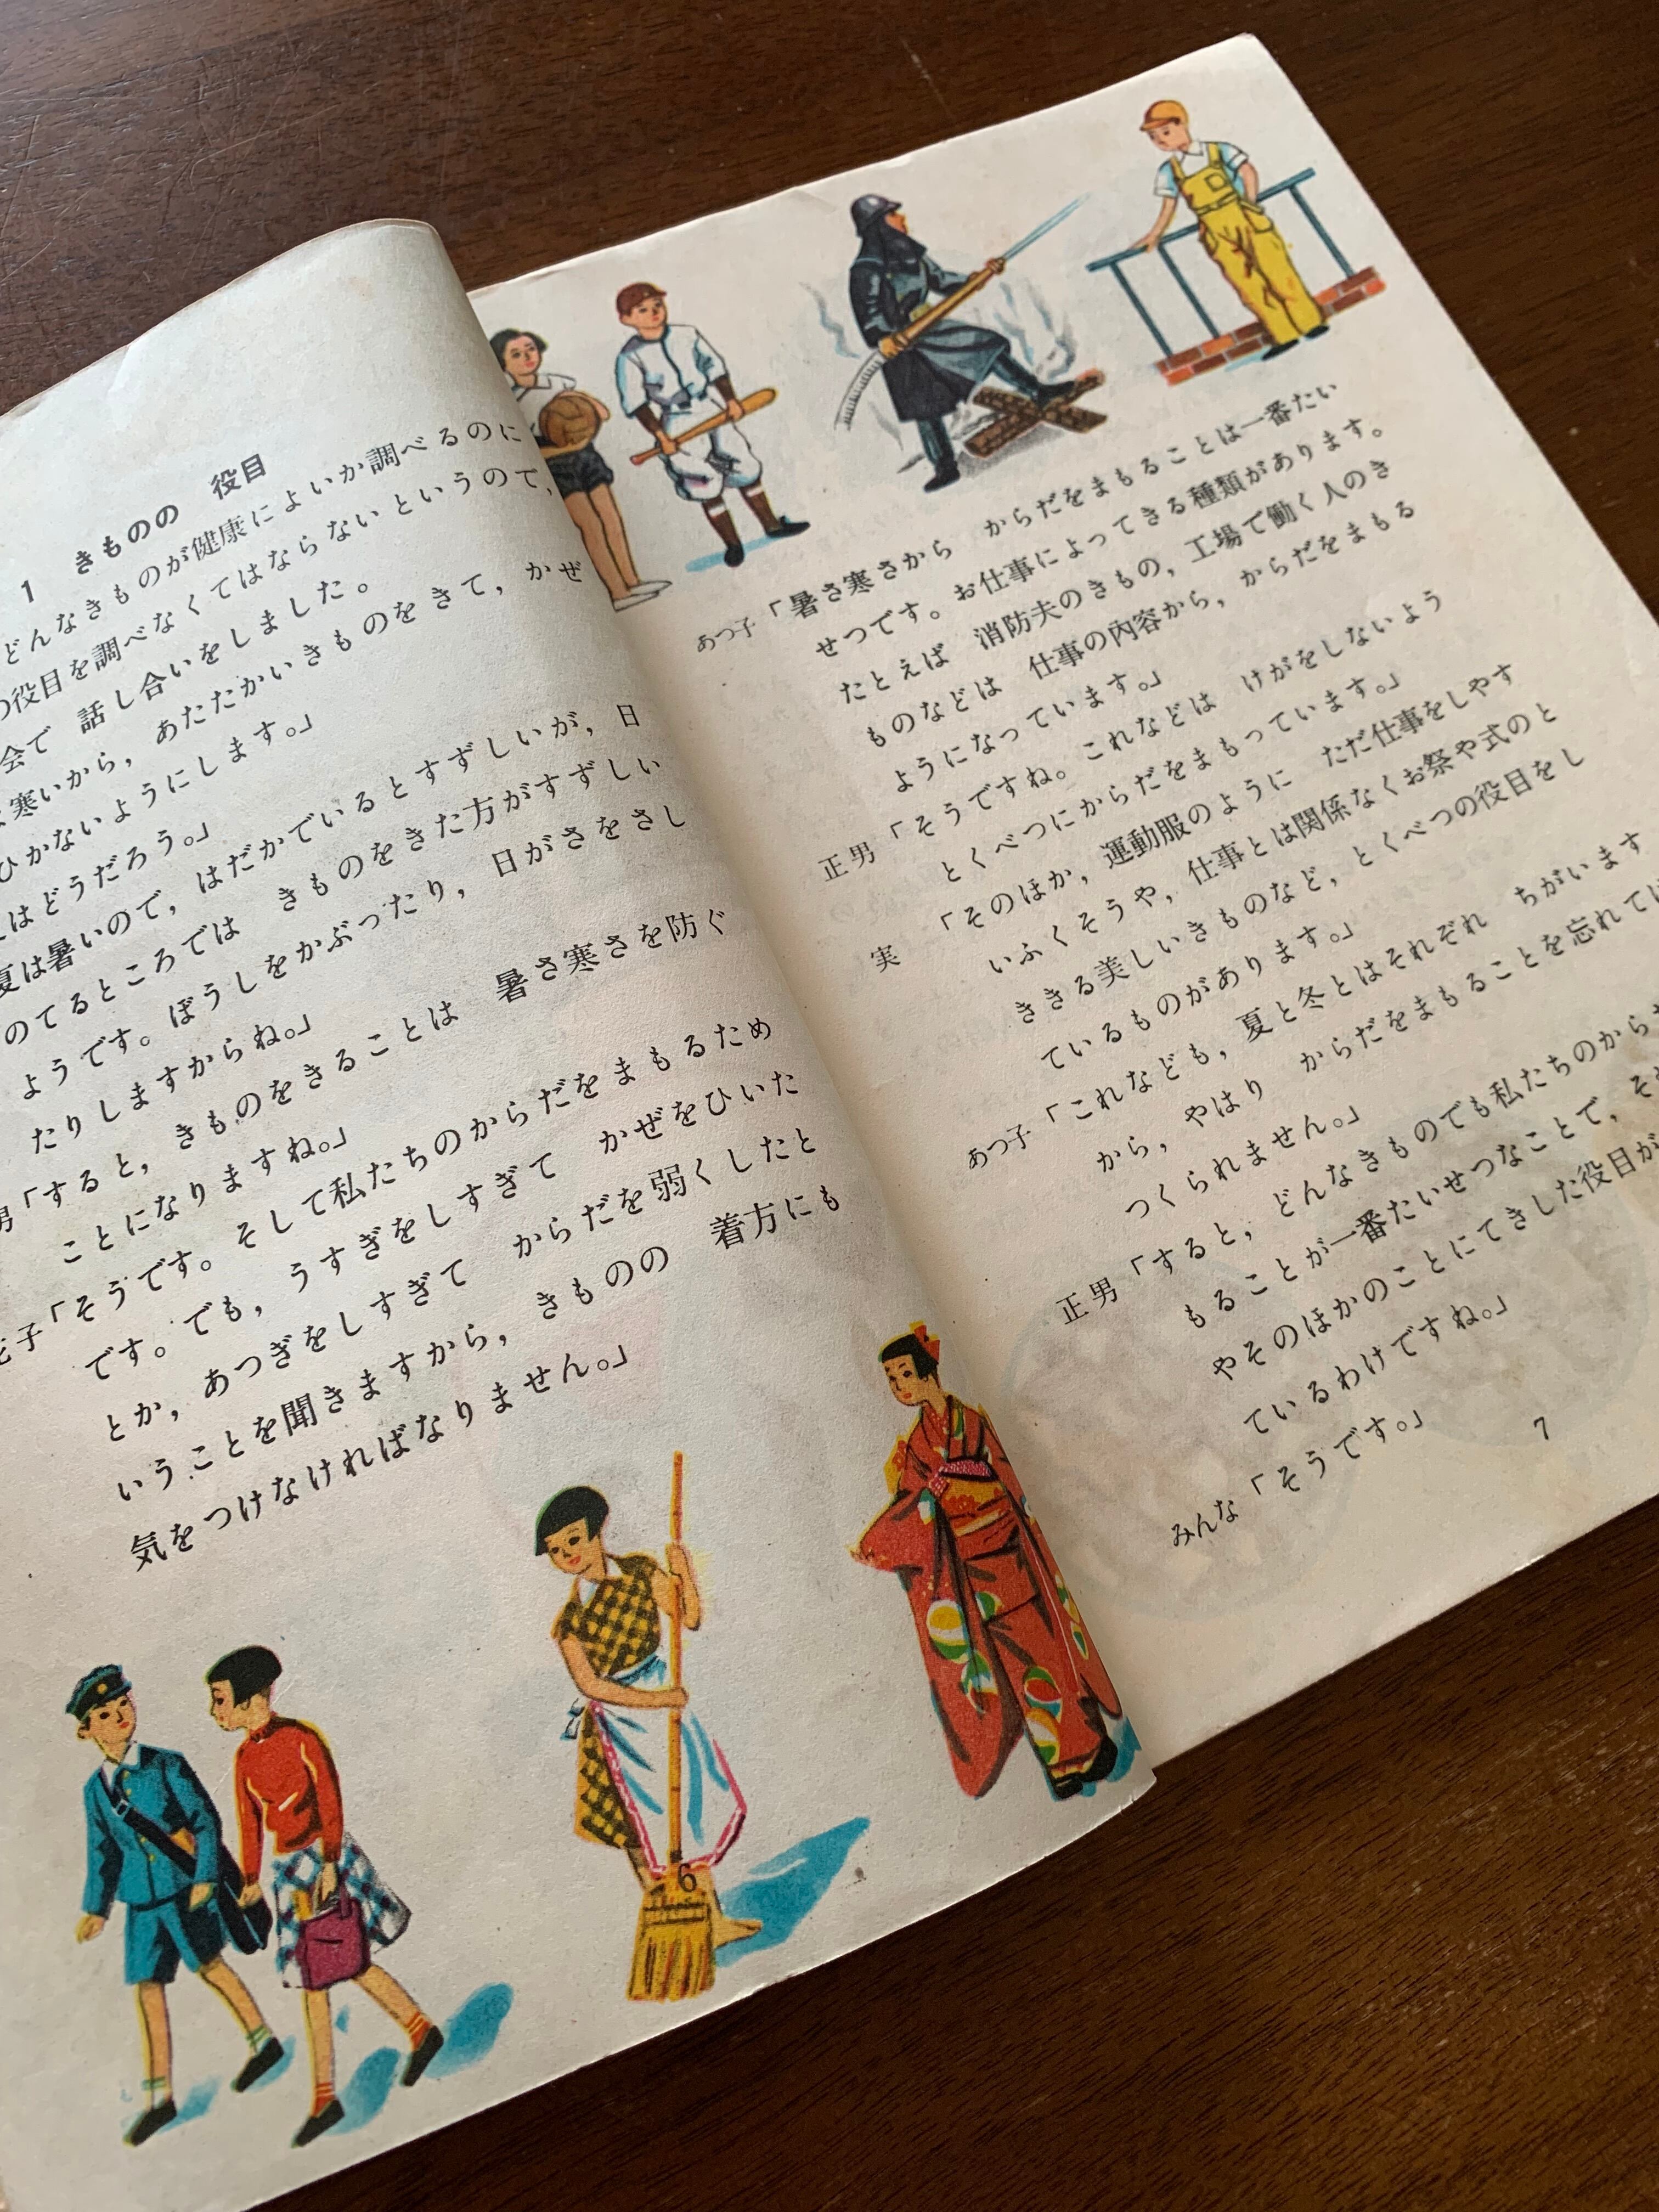 1 きものの 役目
どんなきものが健康によいか調べるのに
の役目を調べなくてはならないというので，
会で 話し合いをしました。
寒いから， あたたかいきものをきて，かぜ
ひかないようにします。」
はどうだろう。」
夏は暑いので，はだかでいるとすずしいが，日
のてるところでは きものをきた方がすずしい
ようです。ぼうしをかぶったり，日がさをさし
たりしますからね。」
男「すると，きものをきることは 暑さ寒さを防ぐ
ことになりますね。」
子「そうです。そして私たちのからだをまもるため
です。でも，うすぎをしすぎて かぜをひいた
とか，あつぎをしすぎて からだを弱くしたと
いうことを聞きますから，きものの 着方にも
気をつけなければなりません。」
6
あつ子「暑さ寒さから からだをまもることは一番たい
せつです。お仕事によってきる種類があります。
たとえば 消防夫のきもの，工場で働く人のき
ものなどは 仕事の内容から， からだをまもる
ようになっています。」
正男「そうですね。これなどは けがをしないよう
とくべつにからだをまもっています。」
実「そのほか，運動服のように ただ仕事をしやす
いふくそうや，仕事とは関係なくお祭や式のと
ききる美しいきものなど，とくべつの役目をし
ているものがあります。」
あつ子「これなども，夏と冬とはそれぞれ ちがいます
から，やはり からだをまもることを忘れては
つくられません。」
正男「すると，どんなきものでも私たちのからだ
もることが一番たいせつなことで，そ
やそのほかのことにてきした役目が
ているわけですね。」
みんな「そうです。」
7